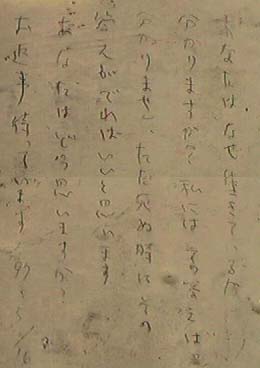 あなたはなぜ生きているか
分かりますか？私には その答えは
分かりません、ただ死ぬ時にその
答えがでればいいと思います
あなたはどう思いますか？
お返事待っています 97 5/16